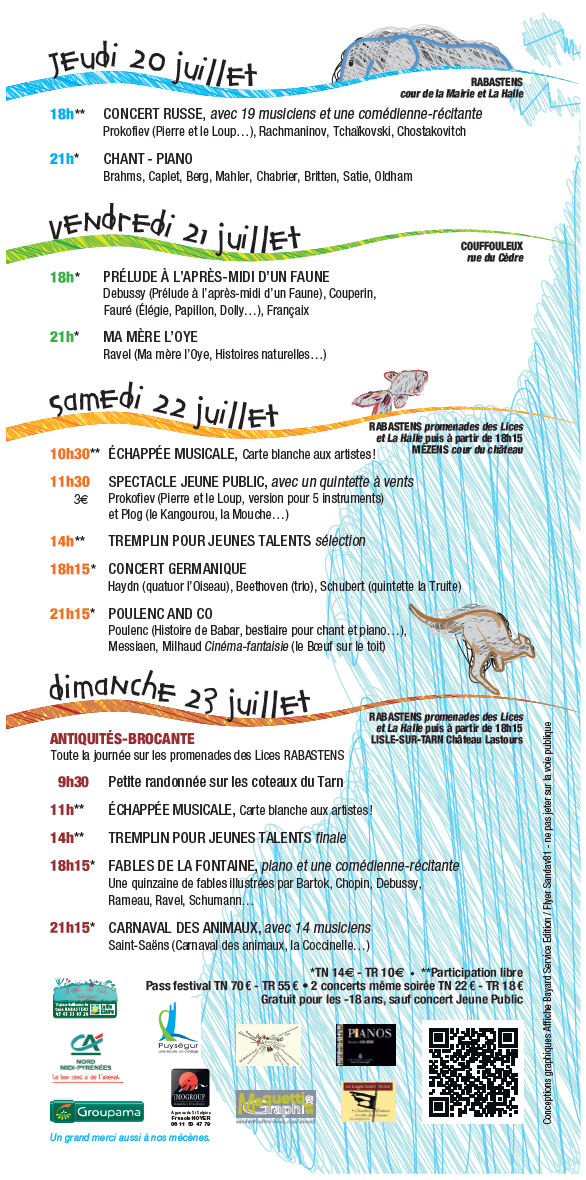 jeudi 20 juillet
RABASTENS
cour de la Mairie et La Halle
18h** CONCERT RUSSE, avec 19 musiciens et une comédienne-récitante
Prokofiev (Pierre et le Loup…), Rachmaninov, Tchaïkovski, Chostakovitch
21h* CHANT - PIANO
Brahms, Caplet, Berg, Mahler, Chabrier, Britten, Satie, Oldham
vendredi 21 juillet
COUFFOULEUX
rue du Cèdre
18h* PRÉLUDE À L'APRÈS-MIDI D'UN FAUNE
Debussy (Prélude à l'après-midi d'un Faune), Couperin,
Fauré (Élégie, Papillon, Dolly…), Françaix
21h* MA MÈRE L'OYE
Ravel (Ma mère l'Oye, Histoires naturelles…)
samedi 22 juillet
RABASTENS promenades des Lices
et La Halle puis à partir de 18h15
MÉZENS cour du château
10h30** ÉCHAPPÉE MUSICALE, Carte blanche aux artistes !
11h30 SPECTACLE JEUNE PUBLIC, avec un quintette à vents
3€ Prokofiev (Pierre et le Loup, version pour 5 instruments)
et Plog (le Kangourou, la Mouche…)
14h** TREMPLIN POUR JEUNES TALENTS sélection
18h15* CONCERT GERMANIQUE
Haydn (quatuor l'Oiseau), Beethoven (trio), Schubert (quintette la Truite)
21h15* POULENC AND CO
Poulenc (Histoire de Babar, bestiaire pour chant et piano…),
Messiaen, Milhaud Cinéma-fantaisie (le Bœuf sur le toit)
dimanche 23 juillet
RABASTENS promenades des Lices
et La Halle puis à partir de 18h15
LISLE-SUR-TARN Château Lastours
ANTIQUITÉS-BROCANTE
Toute la journée sur les promenades des Lices RABASTENS
9h30 Petite randonnée sur les coteaux du Tarn
11h** ÉCHAPPÉE MUSICALE, Carte blanche aux artistes !
14h** TREMPLIN POUR JEUNES TALENTS finale
18h15* FABLES DE LA FONTAINE, piano et une comédienne-récitante
Une quinzaine de fables illustrées par Bartok, Chopin, Debussy,
Rameau, Ravel, Schumann…
21h15* CARNAVAL DES ANIMAUX, avec 14 musiciens
Saint-Saëns (Carnaval des animaux, la Coccinelle…)
*TN 14€ - TR 10€ • **Participation libre
Pass festival TN 70€ - TR 55€ • 2 concerts même soirée TN 22€ - TR 18€
Gratuit pour les -18 ans, sauf concert Jeune Public
Conceptions graphiques Affiche Bayard Service Edition / Flyer Sandav81 - ne pas jeter sur la voie publique
CA
NORD
MIDI-PYRÉNÉES
Le bon sens a de l'avenir
Puységur
une école, un collège
PIANOS
IMOGROUP
Francis NOYER
06 11 50 47 79
Groupama
Maquette
Graphi
Un grand merci aussi à nos mécènes.